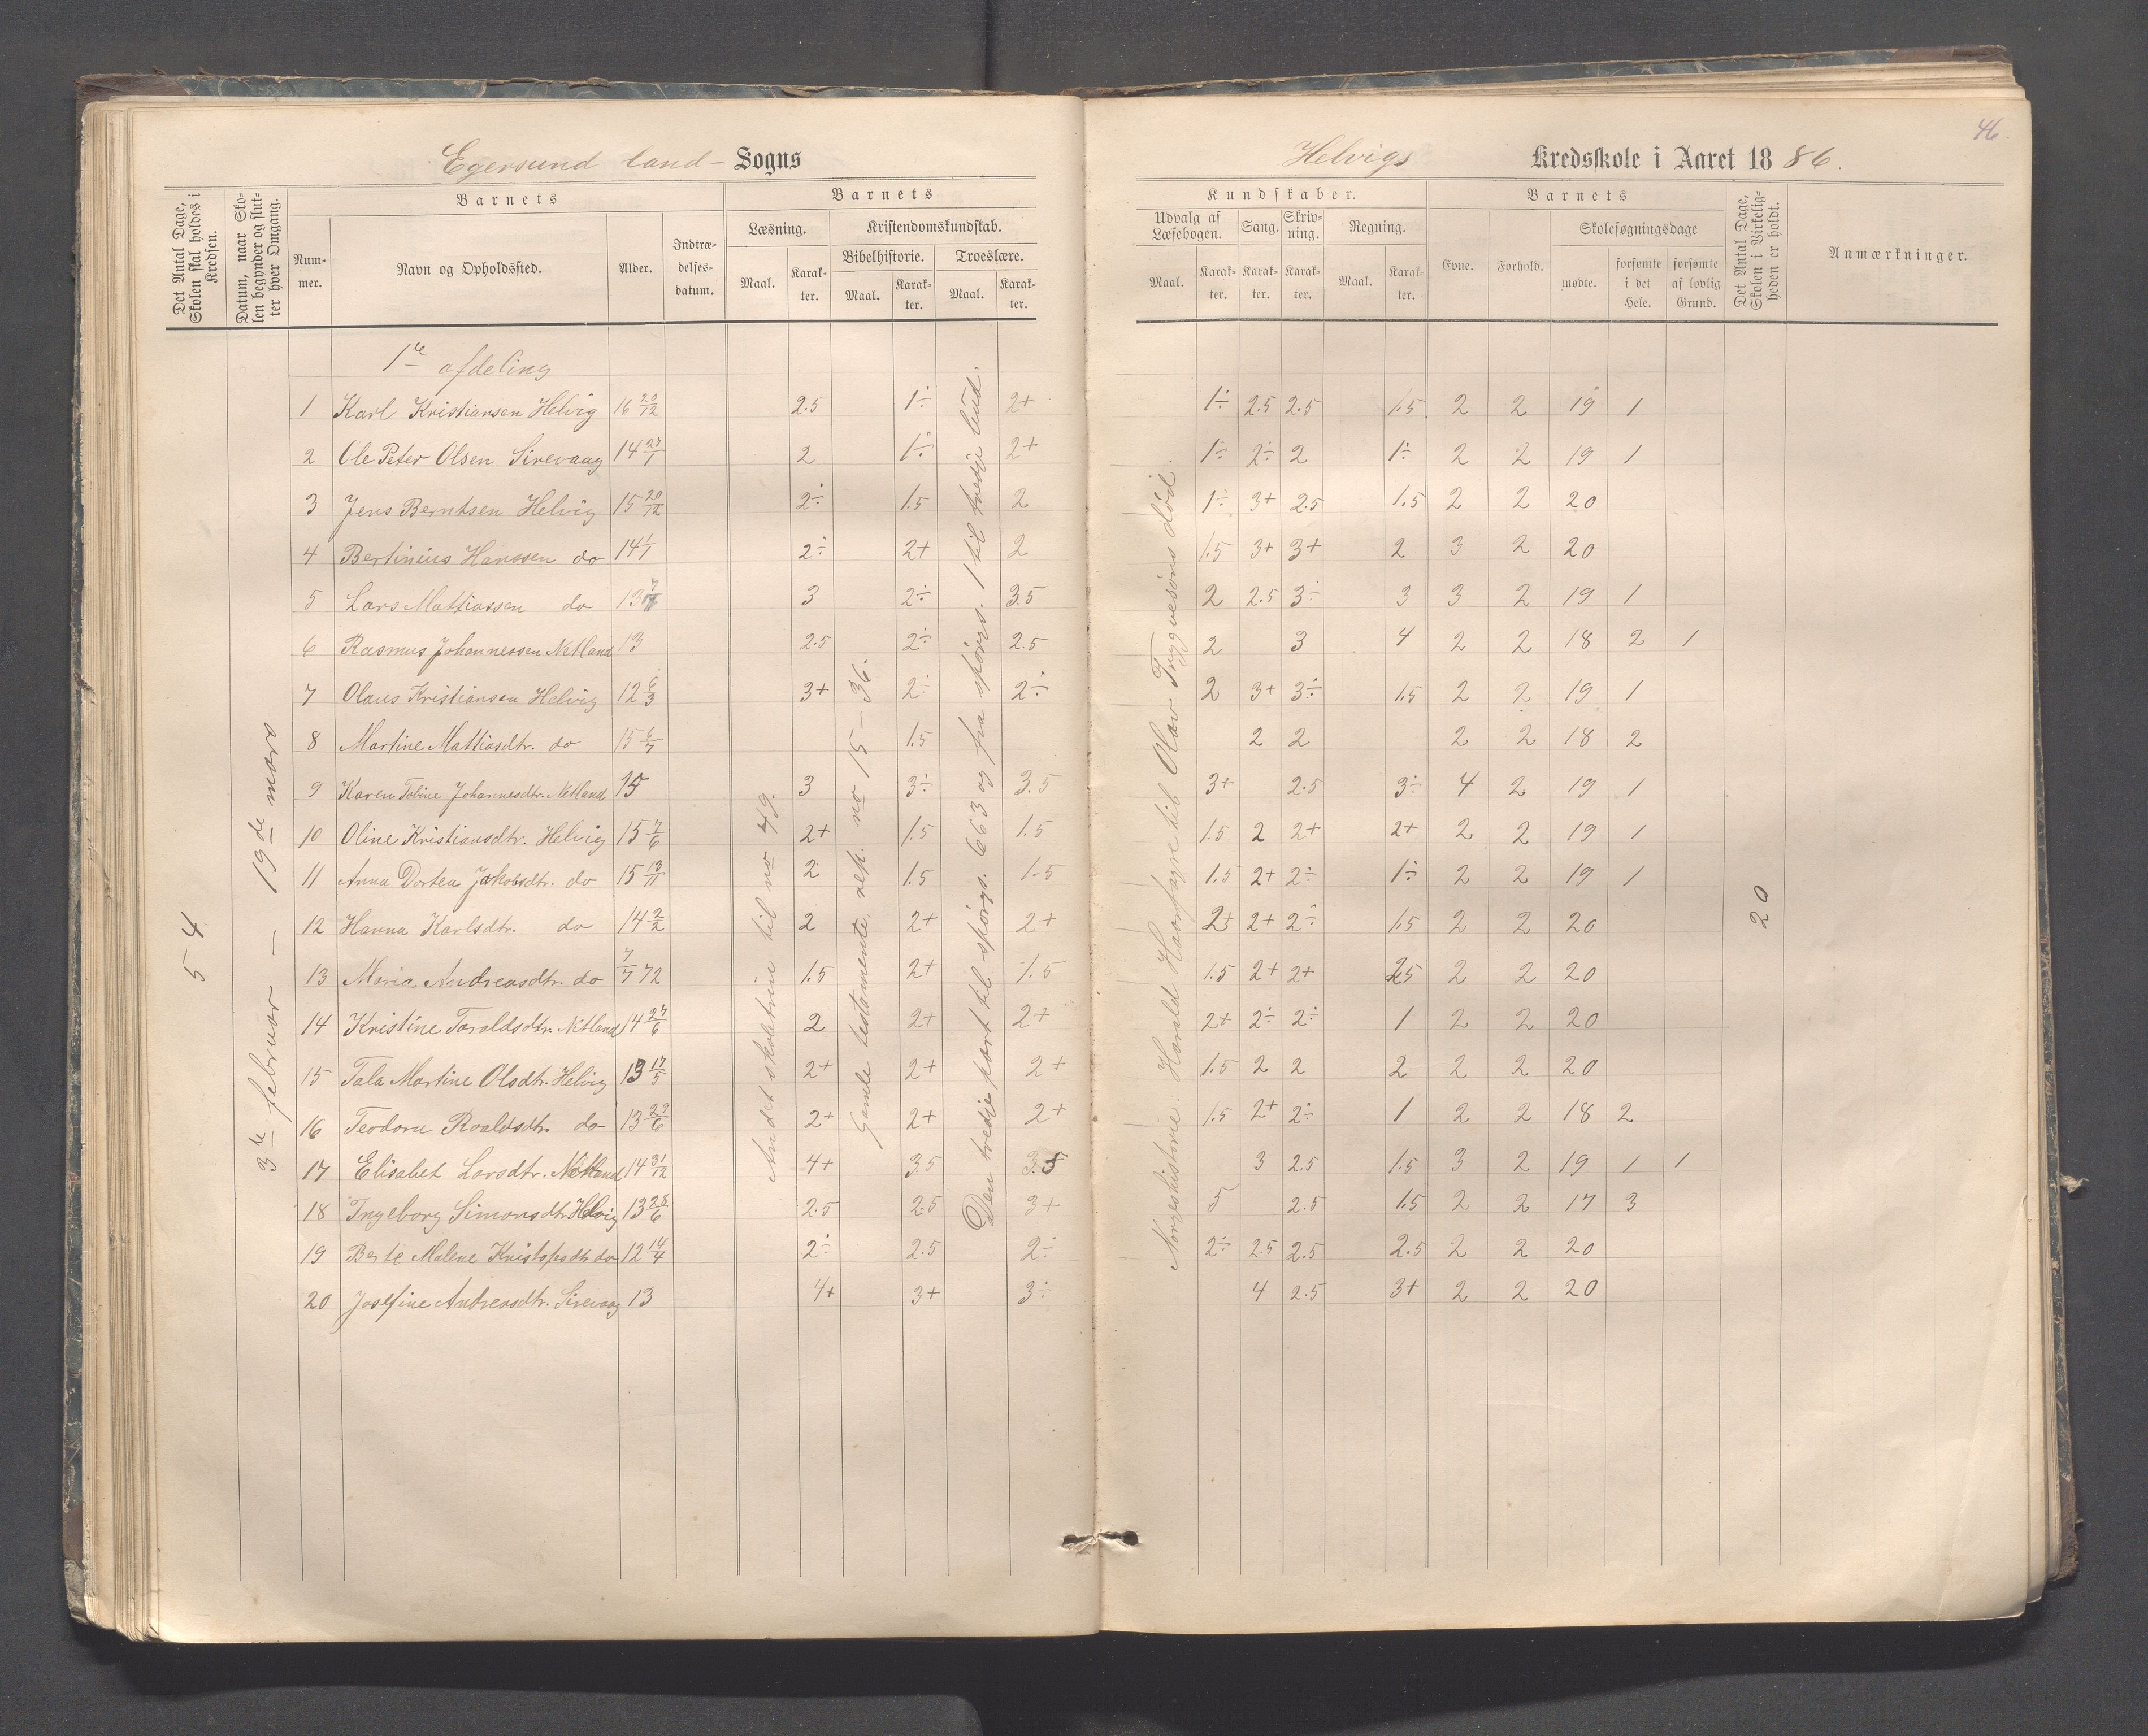 46.
Egersund land- Sogns
Helvigs Kredsskole i Aaret 1886.
Det Antal Dage, Skolen skal holdes i Kredsen.
Datum, naar Skolen begynder og slutter hver Omgang.
Barnets
Nummer.
Navn og Opholdssted.
Alder.
Indtrædelsesdatum.
Barnets
Læsning.
Maal.
Karakter.
Kristendomskundskab.
Bibelhistorie.
Maal.
Karakter.
Troeslære.
Maal.
Karakter.
Kundskaber.
Udvalg af Læsebogen.
Maal.
Karakter.
Sang.
Karakter.
Skrivning.
Karakter.
Regning.
Maal.
Karakter.
Barnets
Evne.
Forhold.
Skolesøgningsdage
mødte.
forsømte i det Hele.
forsømte af lovlig Grund.
Det Antal Dage, Skolen i Virkeligheden er holdt.
Anmærkninger.
54
3de februar — 19de mars
1te afdeling
Andet skoletrin til no 49.
Gamle testamente, rep. no 15 — 36.
Den tredje part til spørgs. 663 og fra spørgs. 1 til tredje bud.
Norgeshistorie. Harald Haarfagre til Olav Trygvesøns død.
20
1 Karl Kristiansen Helvig 16 20/12 2.5 1÷ 2+ 1÷ 2.5 2.5 1.5 2 2 19 1
2 Ole Peter Olsen Sirevaag 14 27/1 2 1÷ 2+ 1÷ 2÷ 2 1÷ 2 2 19 1
3 Jens Berntsen Helvig 15 20/12 2÷ 1.5 2 1÷ 3+ 2.5 1.5 2 2 20
4 Bertinius Hanssen do 14 1/1 2÷ 2+ 2 1.5 3+ 3+ 2 3 2 20
5 Lars Mattiassen do 13 3 2÷ 3.5 2 2.5 3÷ 3 3 2 19 1
6 Rasmus Johannessen Netland 13 2.5 2÷ 2.5 2 3 4 2 2 18 2 1
7 Olaus Kristiansen Helvig 12 6/3 3+ 2÷ 2÷ 2 3+ 3÷ 1.5 2 2 19 1
8 Martine Mattiasdtr. do 15 6/7 1.5 2 2 2 2 18 2
9 Karen Tobine Johannesdtr. Netland 15 3 3÷ 3.5 3+ 2.5 3÷ 4 2 19 1
10 Oline Kristiansdtr. Helvig 15 7/6 2+ 1.5 1.5 1.5 2 2+ 2+ 2 2 19 1
11 Anna Dortea Jakobsdtr. do 15 13/11 2 1.5 1.5 1.5 2+ 2÷ 1÷ 2 2 19 1
12 Hanna Karlsdtr. do 14 2/2 2 2+ 2+ 2+ 2+ 2÷ 1.5 2 2 20
13 Maria Andreasdtr. do 7/7 72 1.5 2+ 1.5 1.5 2+ 2+ 2.5 2 2 20
14 Kristine Taraldsdtr. Netland 14 27/6 2 2+ 2+ 2+ 2÷ 2÷ 1 2 2 20
15 Tala Martine Olsdtr. Helvig 13 17/5 2+ 2+ 2+ 1.5 2 2 2 2 2 20
16 Teodora Roaldsdtr. do 13 29/6 2+ 2+ 2+ 1.5 2+ 2÷ 1 2 2 18 2
17 Elisabet Larsdtr. Netland 14 31/12 4+ 3.5 3.5 3 2.5 1.5 3 2 19 1 1
18 Ingeborg Simonsdtr. Helvig 13 28/6 2.5 2.5 3+ 5 2.5 1.5 2 2 17 3
19 Berte Malene Kristofsdtr. do 12 14/4 2÷ 2.5 2÷ 2÷ 2.5 2.5 2.5 2 2 20
20 Josefine Andreasdtr. Sirevaag 13 4+ 3+ 3÷ 4 2.5 3+ 2 2 20